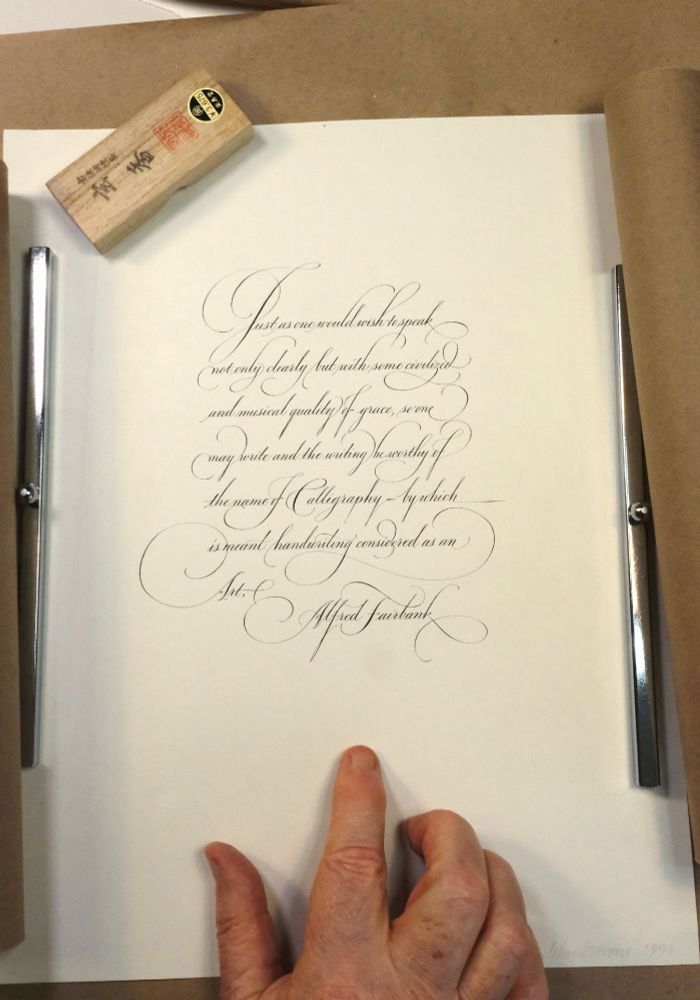 Just as one would wish to speak
not only clearly but with some civilized
and musical quality of grace, so one
may write and the writing be worthy of
the name of Calligraphy — by which
is meant handwriting considered as an
Art.
Alfred Fairbank